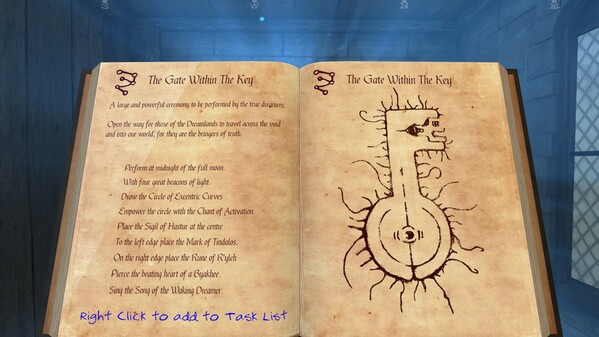 The Gate Within The Key
A large and powerful ceremony to be performed by the true dreamers.
Open the way for those of the Dreamlands to travel across the void
and into our world, for they are the bringers of truth.
Perform at midnight of the full moon.
With four great beacons of light.
Draw the Circle of Excentric Curves
Empower the circle with the Chant of Activation.
Place the Sigil of Hastur at the centre
To the left edge place the Mark of Tindalos.
On the right edge place the Rune of R'yleh
Pierce the beating heart of a Byakhee.
Sing the Song of the Waking Dreamer.
Right Click to add to Task List
The Gate Within The Key